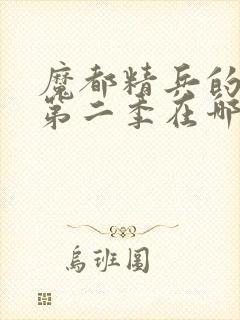 魔都精兵的
第二季在哪
乌班图